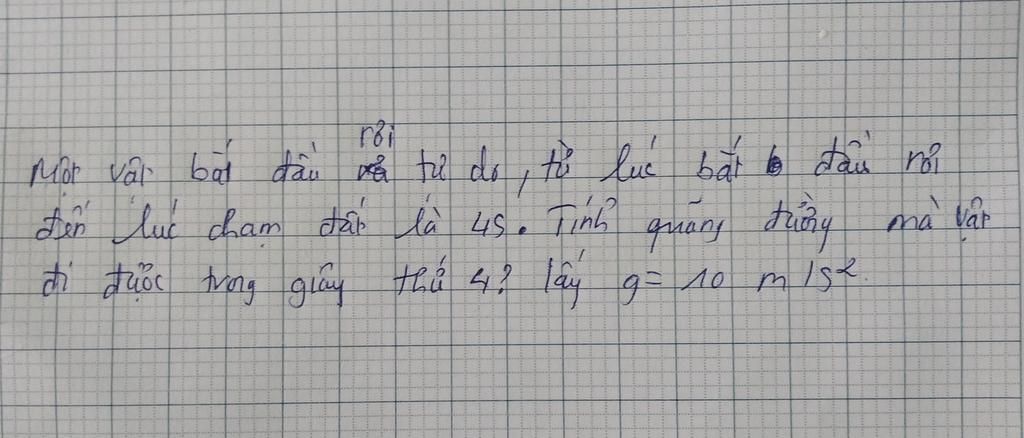 Một vật bắt đầu rơi tự do, từ lúc bắt đầu rơi
đến lúc chạm đất là 4s. Tính quãng đường mà vật
đi được trong giây thứ 4? lấy g = 10 m/s².